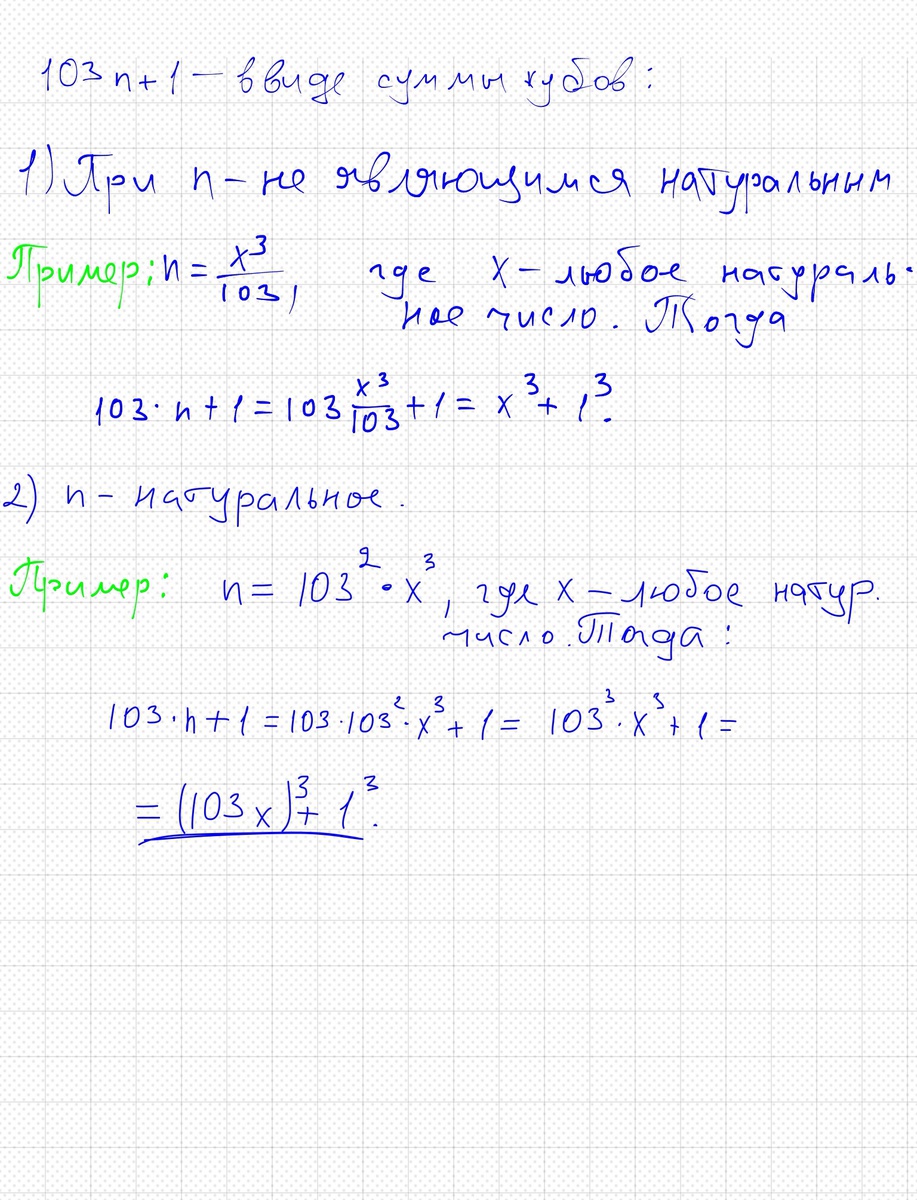 103 n + 1 – в виде суммы кубов:
1) При n – не являющимся натуральным
Пример: n = x³/103, где x – любое натураль-
ное число. Тогда
103 · n + 1 = 103 x³/103 + 1 = x³ + 1³.
2) n – натуральное.
Пример: n = 103² · x³, где x – любое натур.
число. Тогда:
103 · n + 1 = 103 · 103² · x³ + 1 = 103³ · x³ + 1 =
= (103x)³ + 1³.